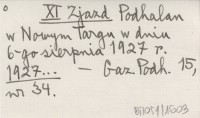 XI Zjazd Podhalan
w Nowym Targu w dniu
6-go sierpnia 1927 r.
1927... — Gaz. Podh. 15,
nr 34.